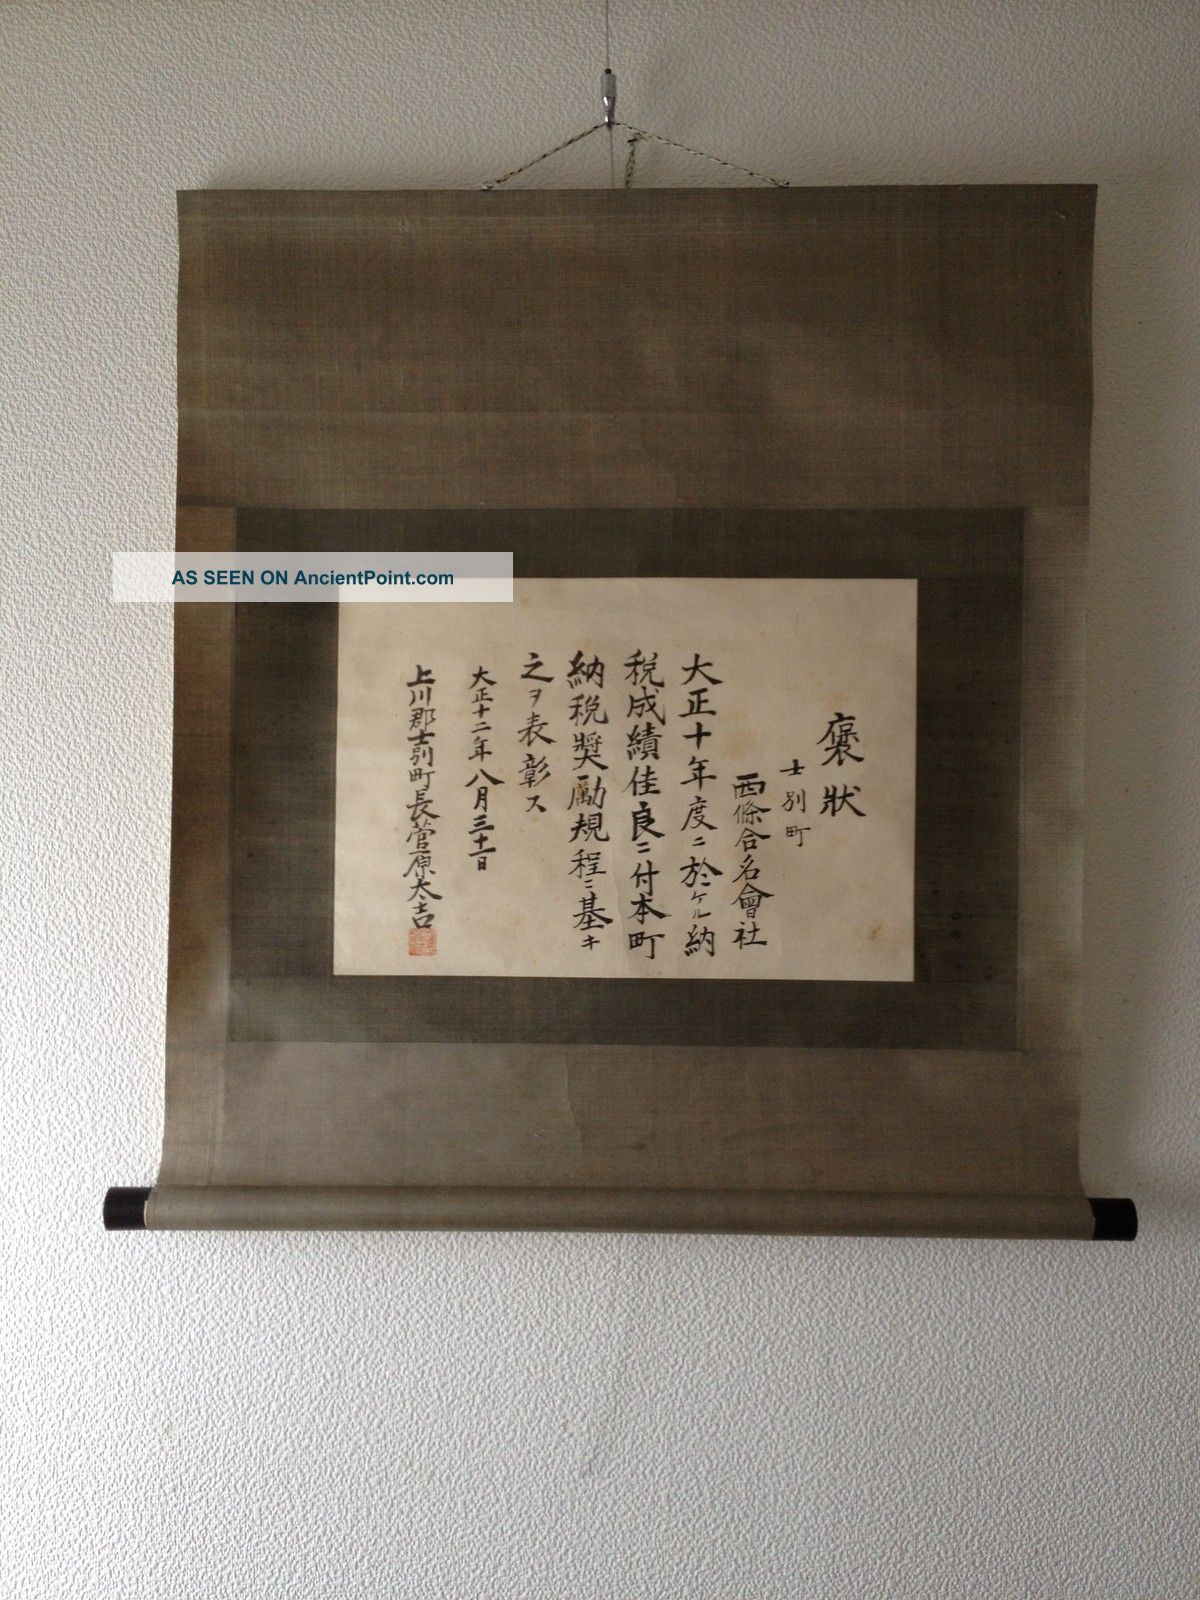 AS SEEN ON AncientPoint.com
褒狀
士別町
西條合名會社
大正十年度ニ於ケル納
税成績佳良ニ付本町
納税奬勵規程ニ基キ
之ヲ表彰ス
大正十二年八月三十一日
上川郡士別町長菅原太吉